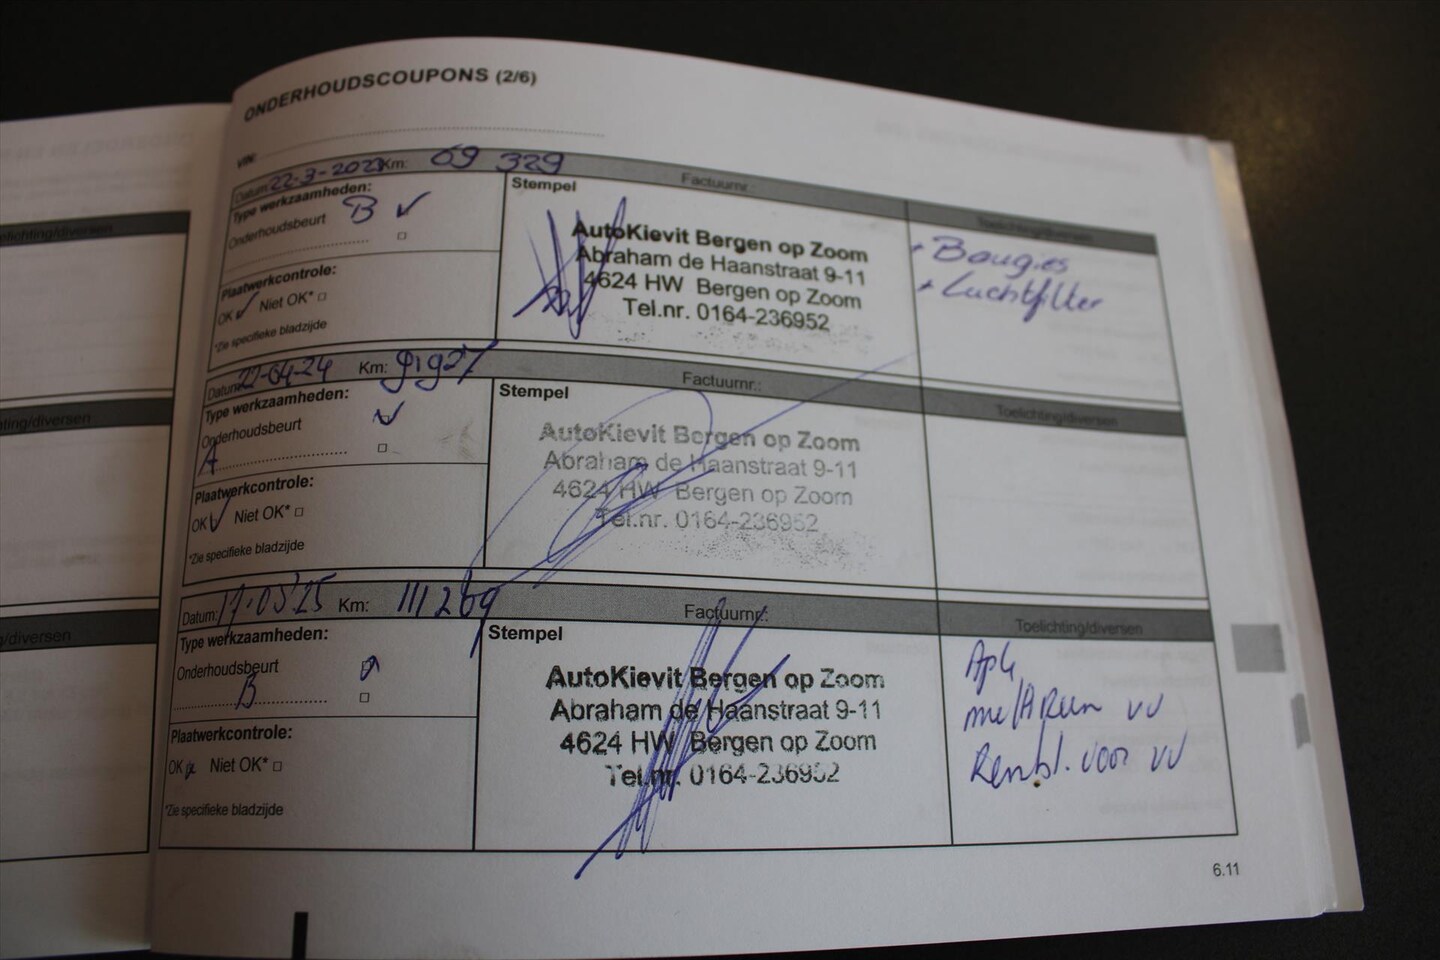 ONDERHOUDSCOUPONS (2/6)
VIN:
Datum: 22-3-2023 Km: 69 329 Factuurnr.:
Type werkzaamheden:
Onderhoudsbeurt B ✓
Plaatwerkcontrole:
OK ✓ Niet OK* □
*Zie specifieke bladzijde
Stempel
AutoKievit Bergen op Zoom
Abraham de Haanstraat 9-11
4624 HW Bergen op Zoom
Tel.nr. 0164-236952
Toelichting/diversen
Bougies
Luchtfilter
Datum: 22-04-24 Km: 91921 Factuurnr.:
Type werkzaamheden:
Onderhoudsbeurt ✓
A
Plaatwerkcontrole:
OK ✓ Niet OK* □
*Zie specifieke bladzijde
Stempel
AutoKievit Bergen op Zoom
Abraham de Haanstraat 9-11
4624 HW Bergen op Zoom
Tel.nr. 0164-236952
Toelichting/diversen
Datum: 17-03'25 Km: 111269 Factuurnr.:
Type werkzaamheden:
Onderhoudsbeurt
B
Plaatwerkcontrole:
OK Niet OK* □
*Zie specifieke bladzijde
Stempel
AutoKievit Bergen op Zoom
Abraham de Haanstraat 9-11
4624 HW Bergen op Zoom
Tel.nr. 0164-236952
Toelichting/diversen
Apk
VV
Rembl. voor VV
6.11